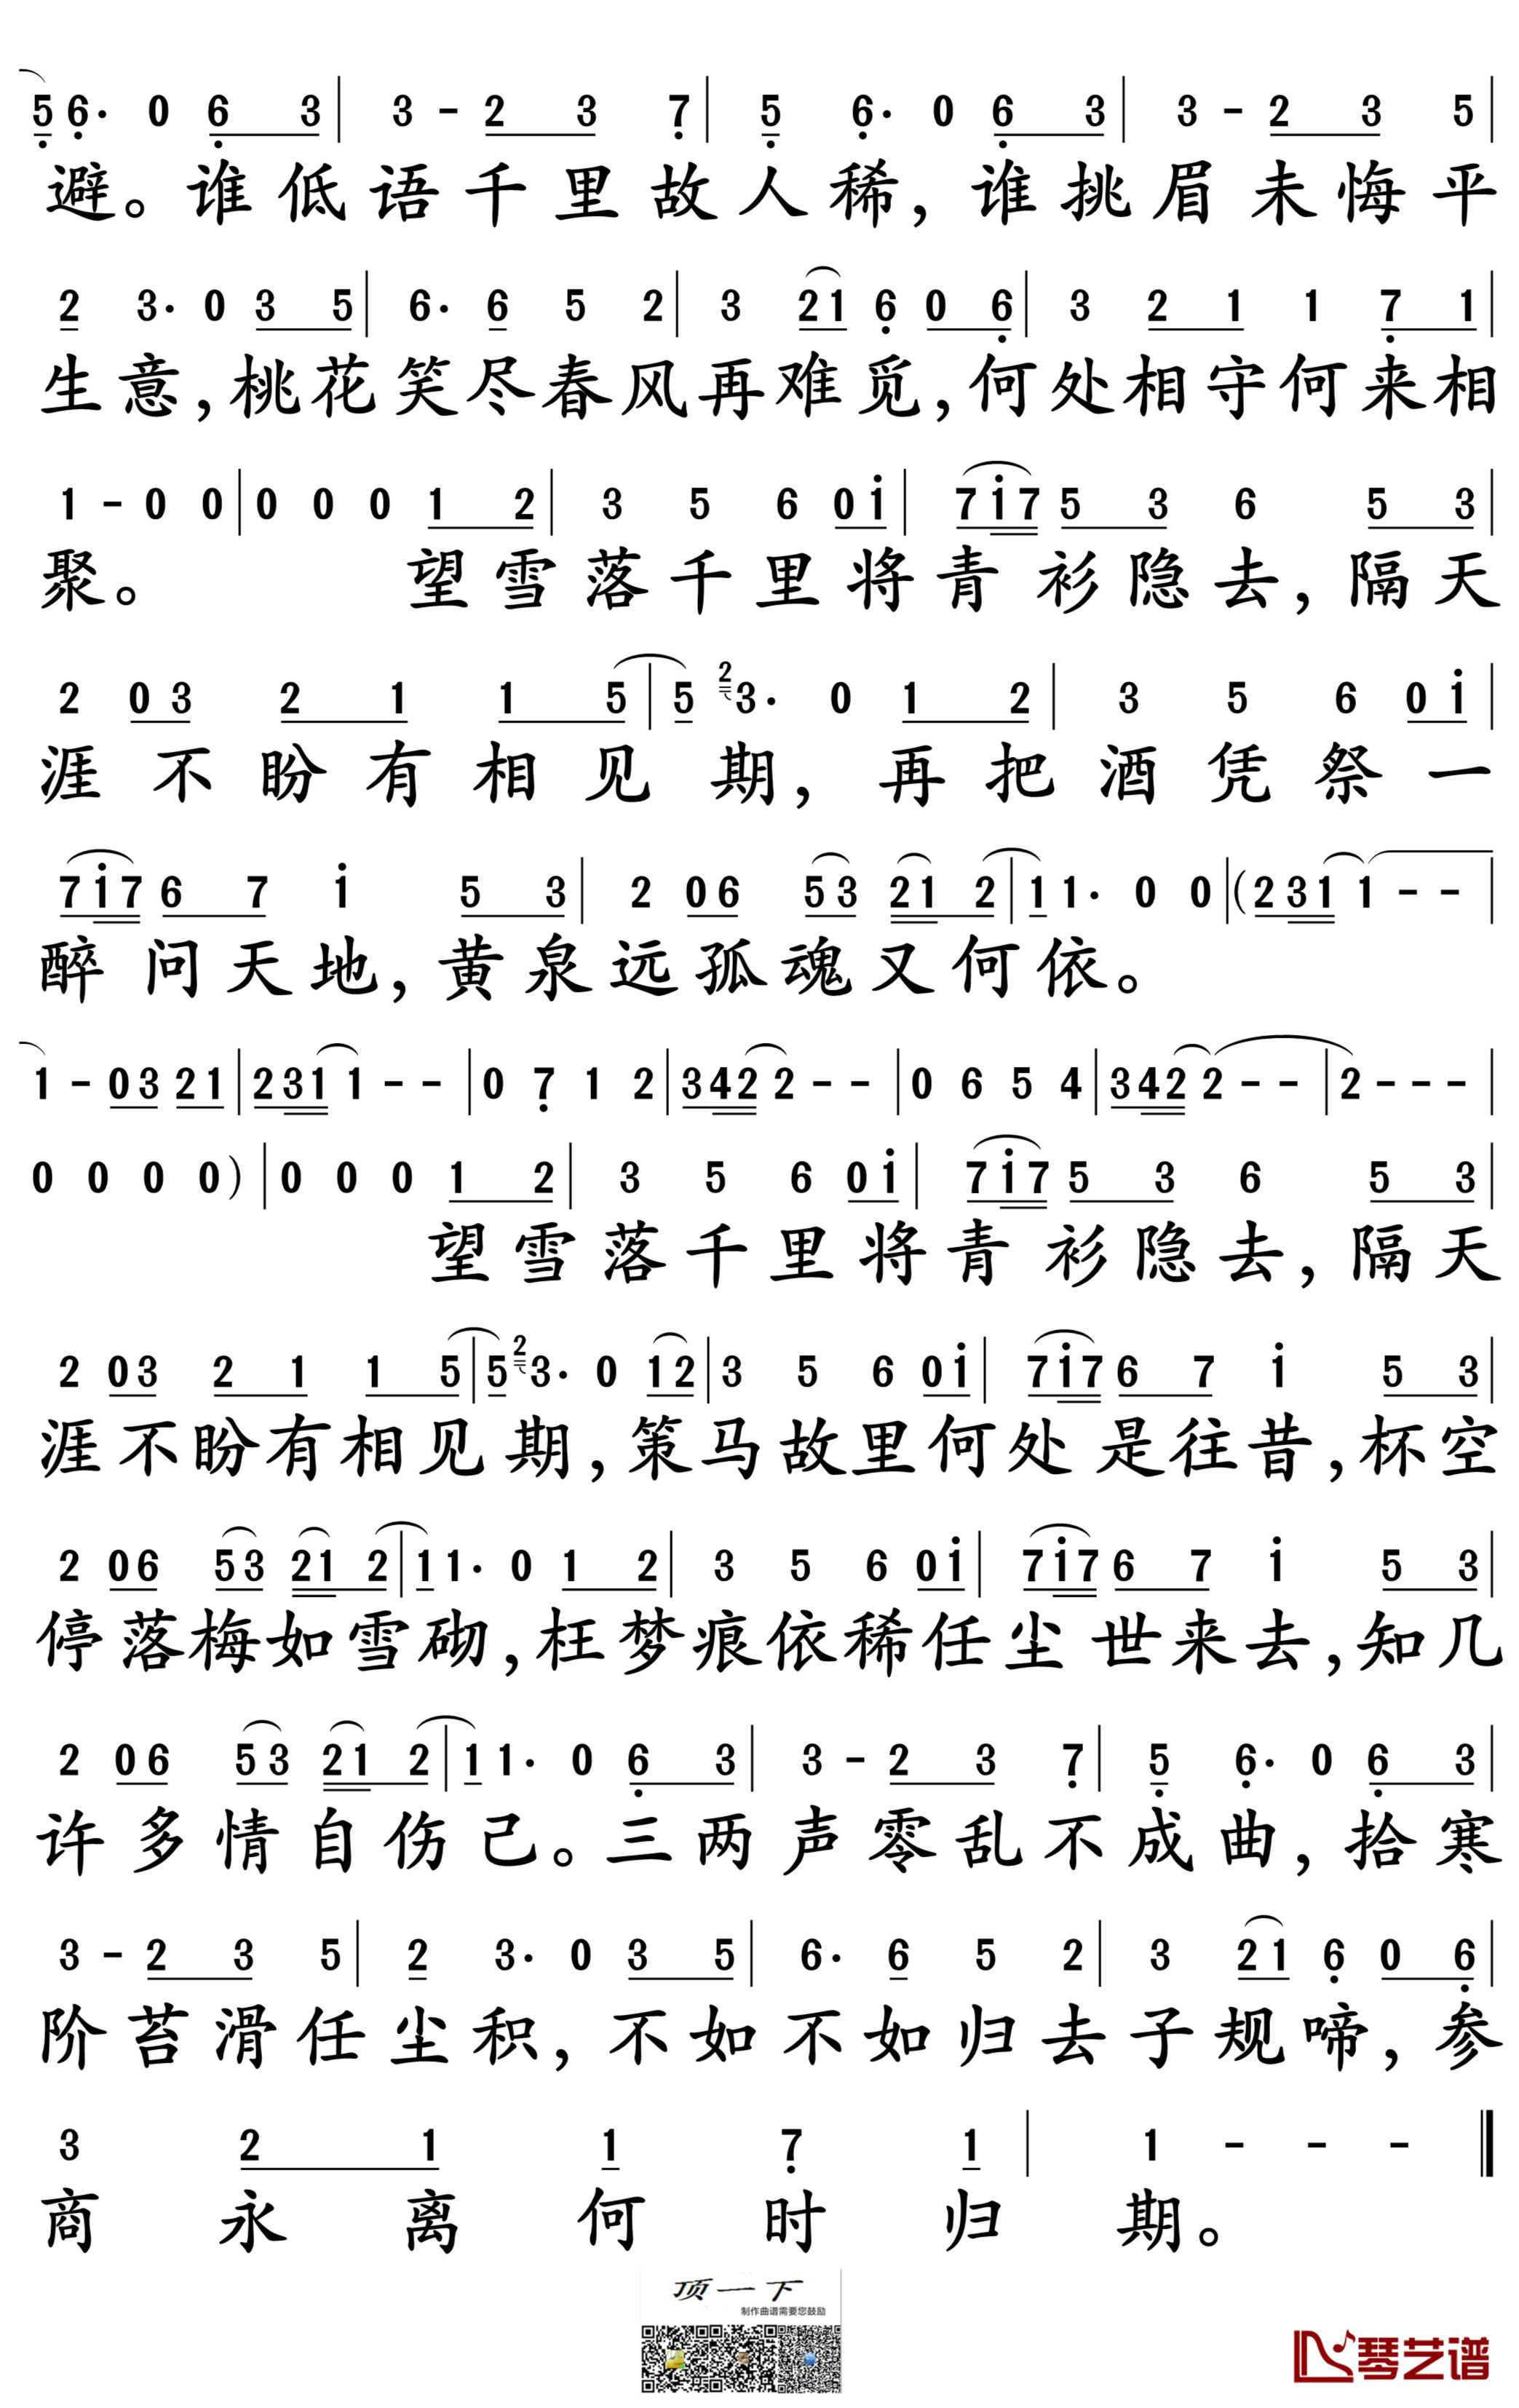 5 6· 0 6 3 | 3 - 2 3 7 | 5 6· 0 6 3 | 3 - 2 3 5 |
避。谁低语千里故人稀，谁挑眉未悔平
2 3· 0 3 5 | 6· 6 5 2 | 3 21 6 0 6 | 3 2 1 1 7 1 |
生意，桃花笑尽春风再难觅，何处相守何来相
1 - 0 0 | 0 0 0 1 2 | 3 5 6 0 i | 7i7 5 3 6 5 3 |
聚。 望雪落千里将青衫隐去，隔天
2 03 2 1 1 5 | 5 2 3· 0 1 2 | 3 5 6 0 i |
涯不盼有相见期，再把酒凭祭一
7i7 6 7 i 5 3 | 2 06 53 21 2 | 1 1· 0 0 | (231 1 - - |
醉问天地，黄泉远孤魂又何依。
1 - 03 21 | 231 1 - - | 0 7 1 2 | 342 2 - - | 0 6 5 4 | 342 2 - - | 2 - - - |
0 0 0 0) | 0 0 0 1 2 | 3 5 6 0i | 7i7 5 3 6 5 3 |
望雪落千里将青衫隐去，隔天
2 03 2 1 1 5 | 5 2 3· 0 12 | 3 5 6 0i | 7i7 6 7 i 5 3 |
涯不盼有相见期，策马故里何处是往昔，杯空
2 06 53 21 2 | 1 1· 0 1 2 | 3 5 6 0i | 7i7 6 7 i 5 3 |
停落梅如雪砌，枉梦痕依稀任尘世来去，知几
2 06 53 21 2 | 1 1· 0 6 3 | 3 - 2 3 7 | 5 6· 0 6 3 |
许多情自伤己。三两声零乱不成曲，拾寒
3 - 2 3 5 | 2 3· 0 3 5 | 6· 6 5 2 | 3 21 6 0 6 |
阶苔滑任尘积，不如不如归去子规啼，参
3 2 1 1 7 1 | 1 - - - ‖
商永离何时归期。
顶一下
制作曲谱需要您鼓励
琴艺谱